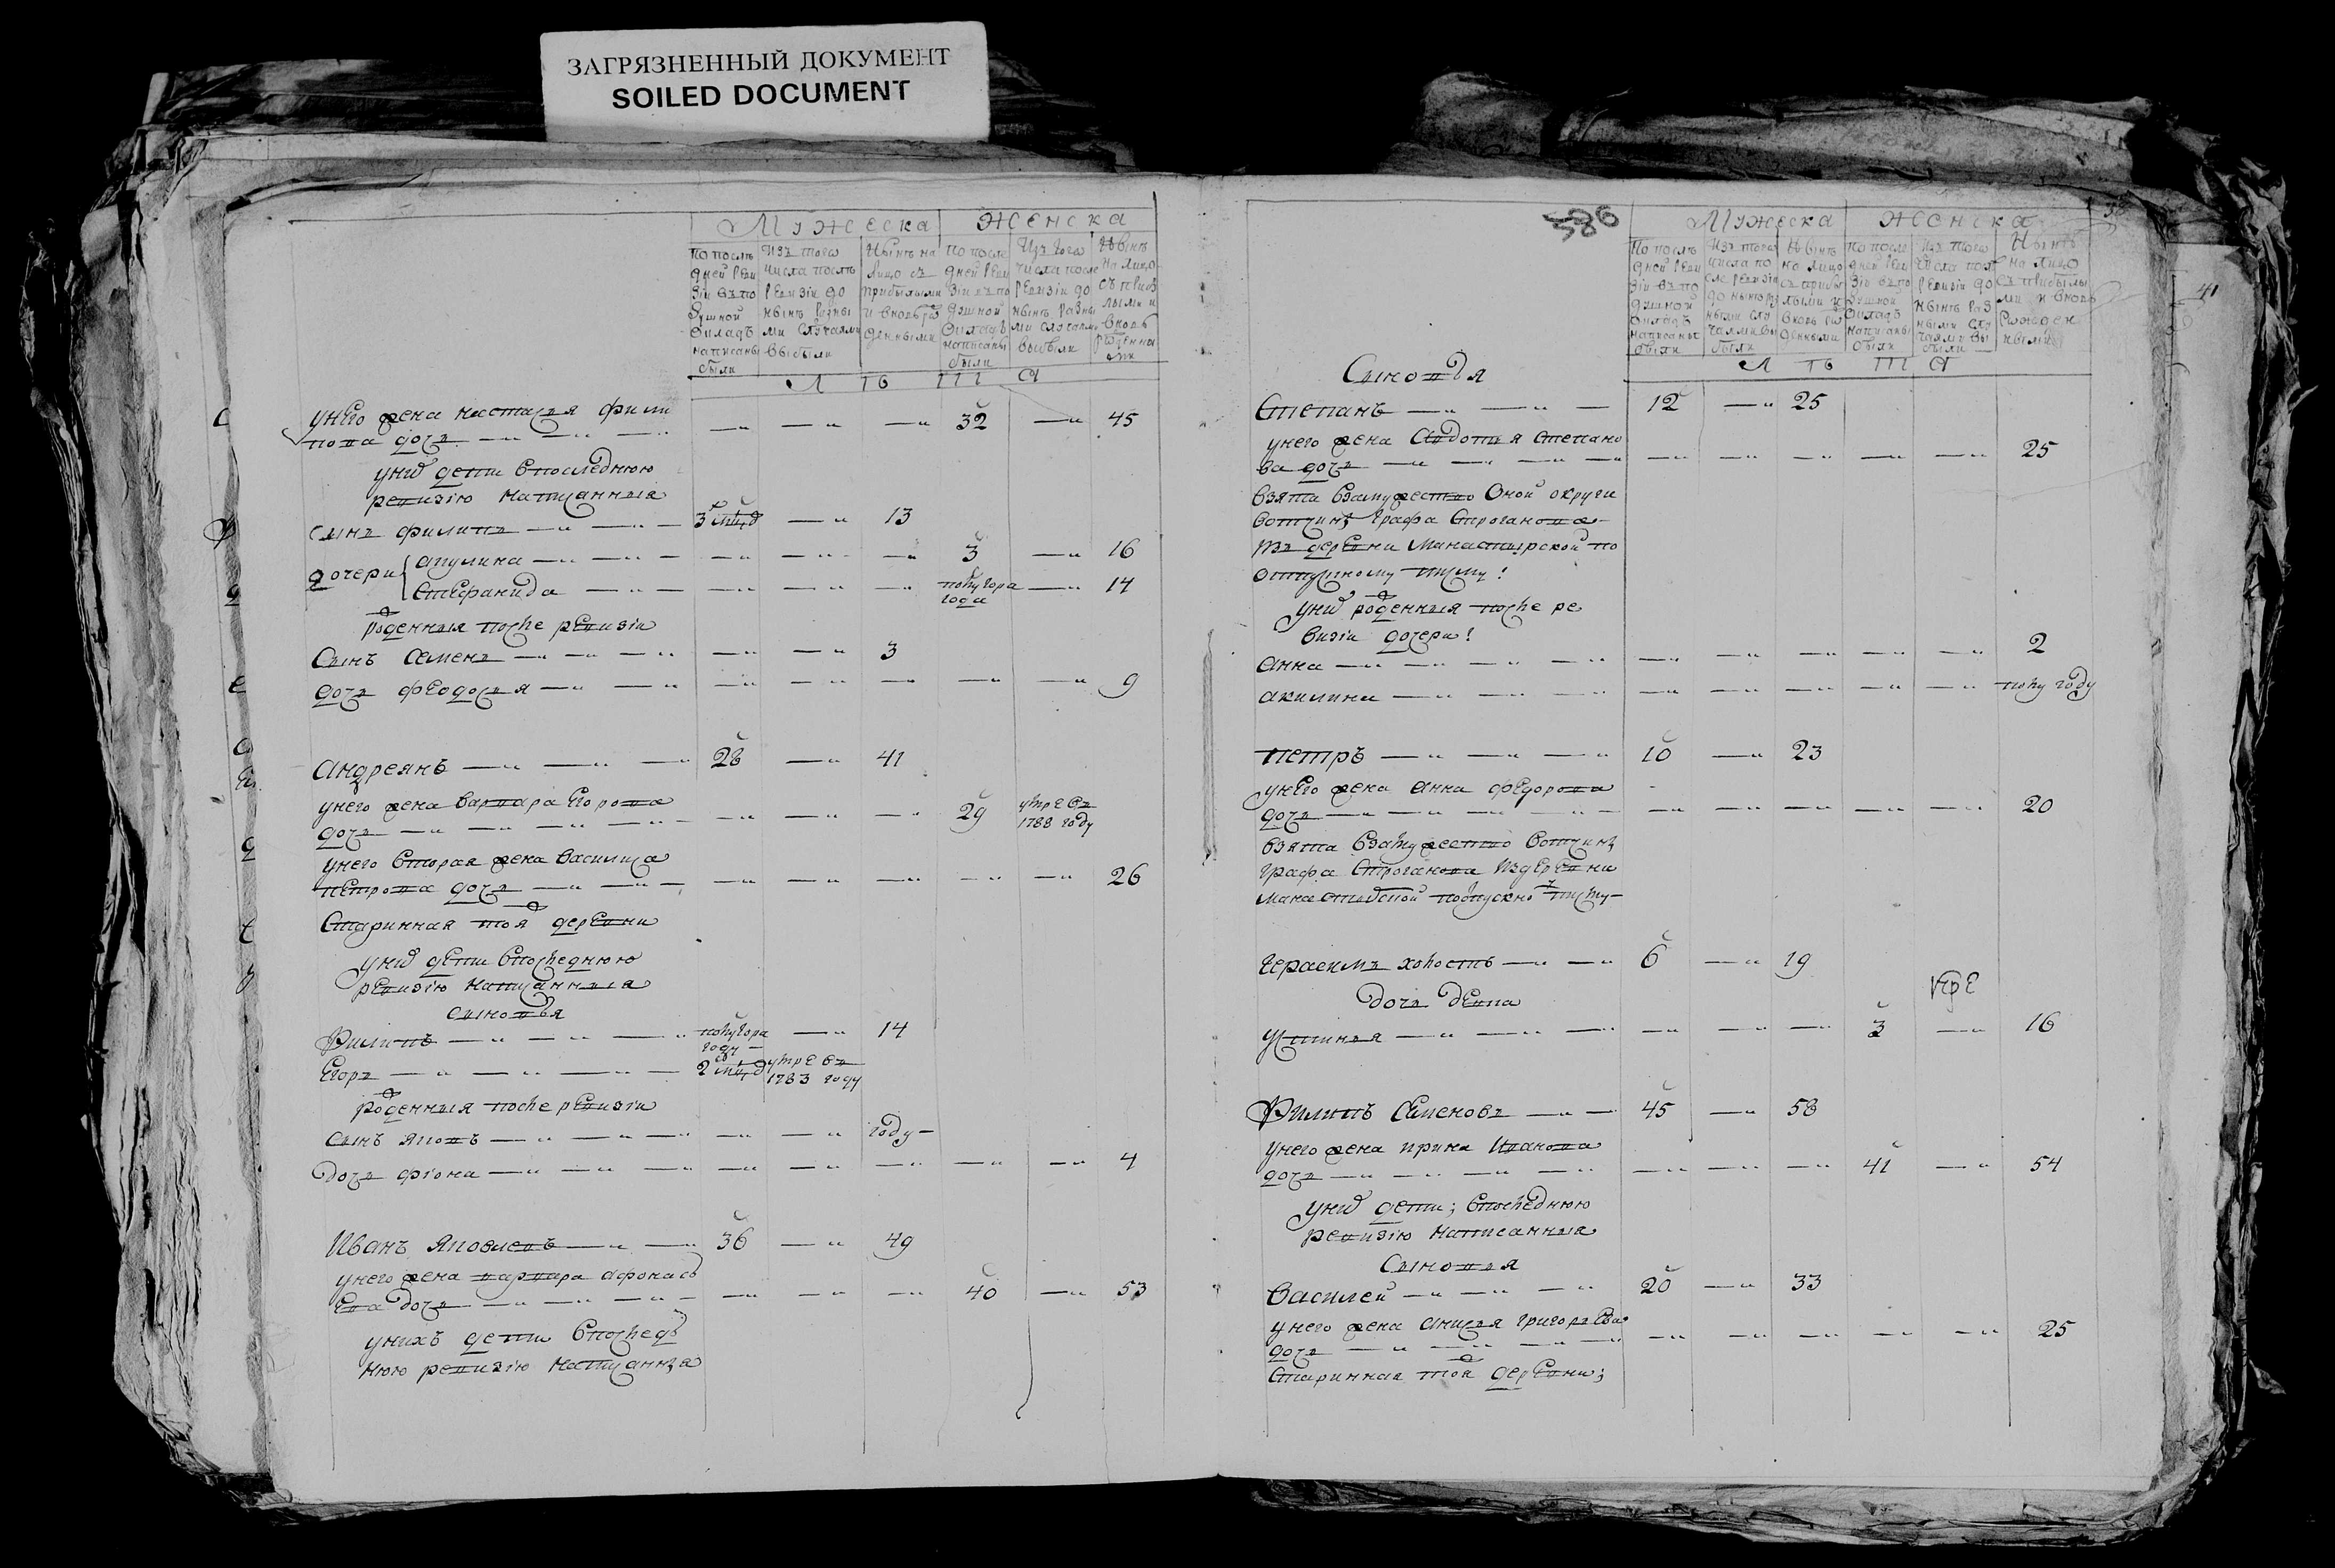 ЗАГРЯЗНЕННЫЙ ДОКУМЕНТ
SOILED DOCUMENT
Мужеска Женска
По послѣ дней реви зіи въ по душной окладъ написаны были
Изъ того числа послѣ ревизіи до нынѣ разны ми случаями выбыли
Нынѣ на лицо съ прибылыми и вновь рож денными
По после дней реви зіи въ по душной окладъ написаны были
Изъ того числа после ревизіи до нынѣ разны ми случаями выбыли
Нынѣ на лицо съ прибы лыми и вновь рожденны ми
Л Ѣ Т А
унего жена настасья фили
пова дочь 32 45
уних дети впоследнюю
ревизію написанныя
сынъ филипъ 3 мцд 13
дочери
акулина 3 16
Стефанида полутора года 14
рожденныя после ревизіи
Сынъ Семенъ 3
дочь феодосья 9
Андреянъ 28 41
унего жена варвара Егорова
дочь 29 умре въ 1788 году
унего вторая жена василиса
петрова дочь 26
Старинная той деревни
уних дети впоследнюю
ревизію написанныя
сыновья
Филипъ полутора году 14
Егоръ 2 мцд умре въ 1783 году
рожденныя после ревизіи
сынъ яковъ году
Дочь фіона 4
Иванъ Яковлевъ 36 49
унего жена варвара афонась
ева дочь 40 53
унихъ дети впослед
нюю ревизію написанныя
586
41
Мужеска Женска
По послѣ дней реви зіи въ по душной окладъ написаны были
Изъ того числа по сле ревизіи до нынѣ раз ными слу чаями вы были
Нынѣ на лицо съ прибы лыми и вновь рож денными
По после дней реви зіи въ по душной окладъ написаны были
Изъ того числа посл ревизіи до нынѣ раз ными слу чаями вы были
Нынѣ на лицо съ прибылы ми и вновь рожден ными
Л Ѣ Т А
Сыновья
Степанъ 12 25
унего жена Авдотья Степано
ва дочь 25
взята взамужество Оной округи
вотчинѣ графа Строганова
изъ деревни Манастырской по
отпускному писму!
уних рожденныя после ре
визіи дочери!
анна 2
акилина полу году
петръ 10 23
унего жена анна федорова
дочь 20
взята взамужество вотчинѣ
графа Строганова Издеревни
Манастырской поотпускно писму
Герасимъ холостъ 6 19
дочь девка умре
Устинья 3 16
Филипъ Семеновъ 45 58
унего жена ирина Иванова
дочь 41 54
уних дети; впоследнюю
ревизію написанныя
Сыновья
Василей 20 33
унего жена анисья григорьева
дочь 25
Старинная той деревни;